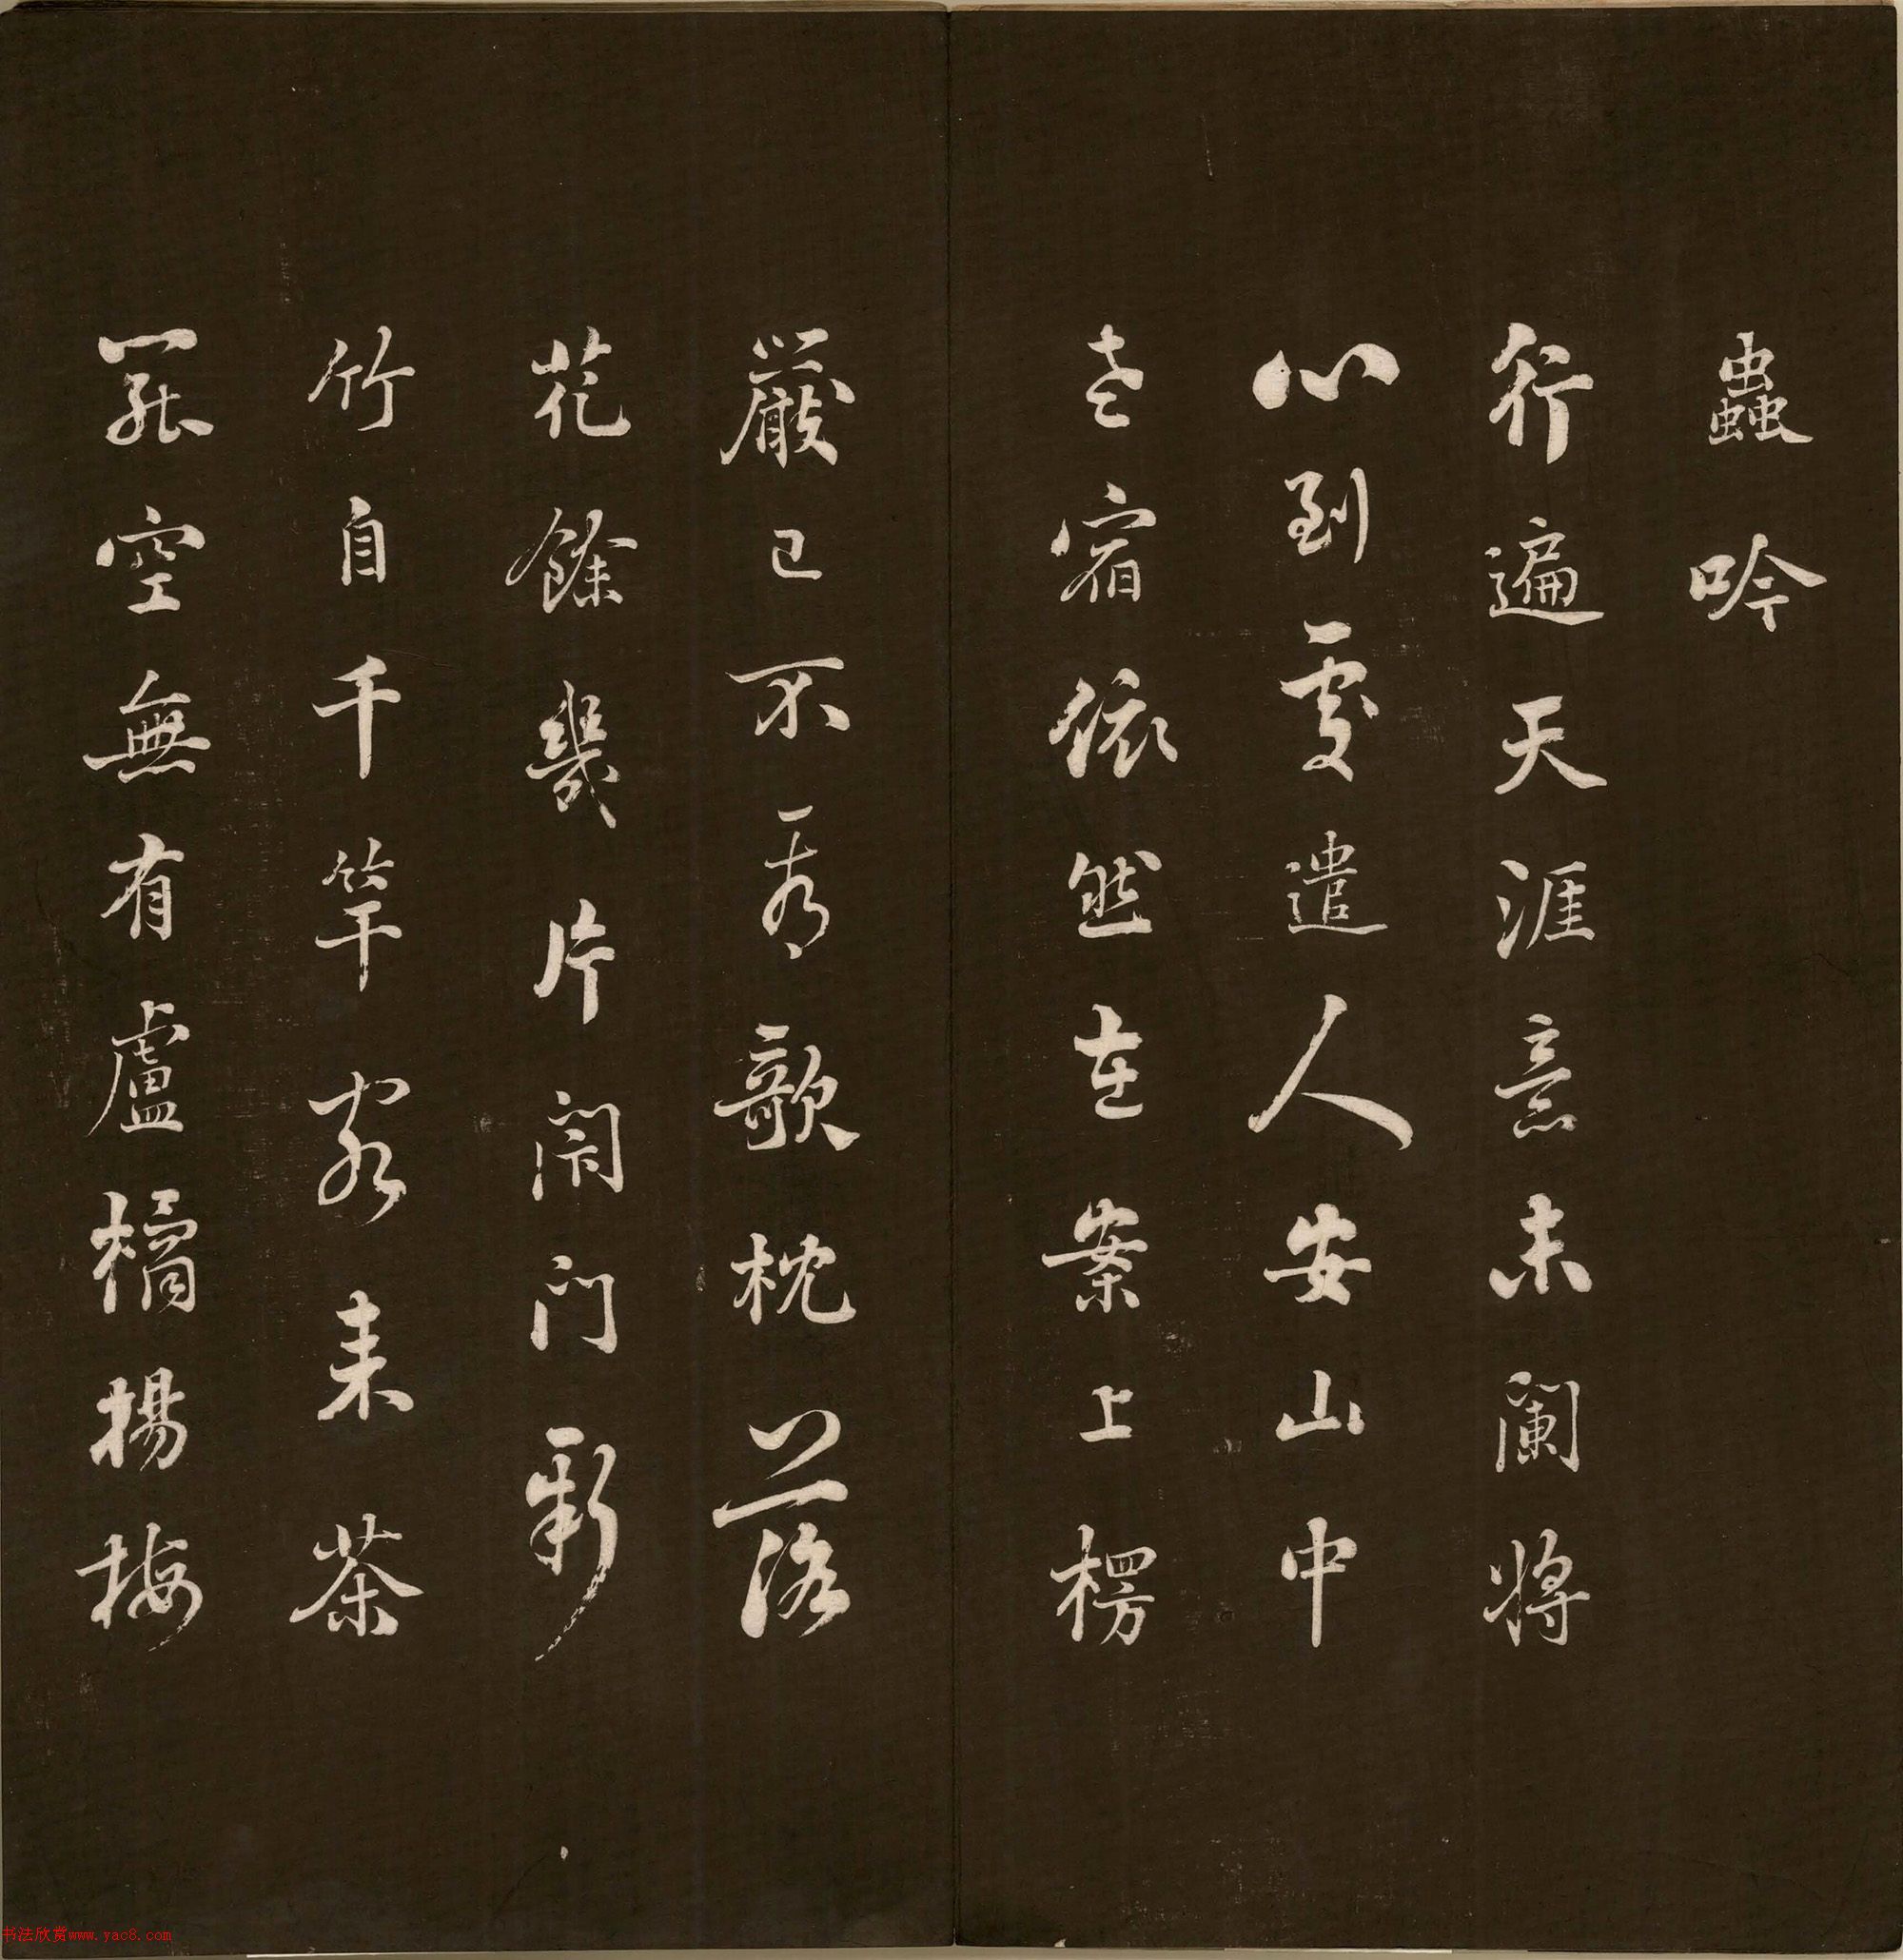 蟲吟
行遍天涯意未闌將
心到處遣人安山中
老宿依然在案上楞
嚴已不看欹枕落
花餘幾片閇門新
竹自千竿客来茶
罷空無有盧橘楊梅
书法欣赏www.yac8.com